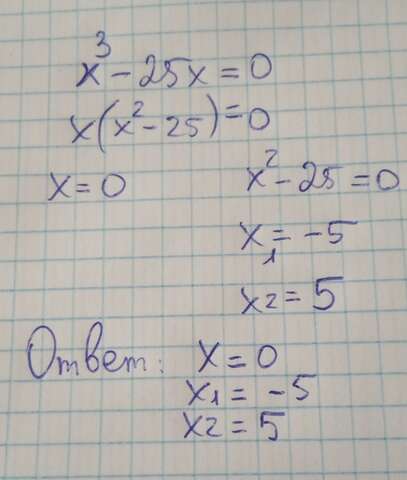 x³ - 25x = 0
x(x² - 25) = 0
x = 0
x² - 25 = 0
x₁ = -5
x2 = 5
Ответ: x = 0
x1 = -5
x2 = 5